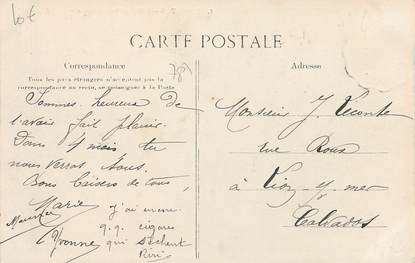 lot
CARTE POSTALE
Correspondance
Tous les pays étrangers n'acceptent pas la
correspondance au recto, se renseigner à la Poste
781
Adresse
Sommes heureux de
t'avoir fait plaisir.
Dans 4 mois tu
nous verras tous.
Bons baisers de tous,
Marie
Maurice
Yvonne
j'ai encore
q.q. cigares
qui sèchent
Monsieur J. Lecomte
rue Roux
à Lion-s/-mer
Calvados